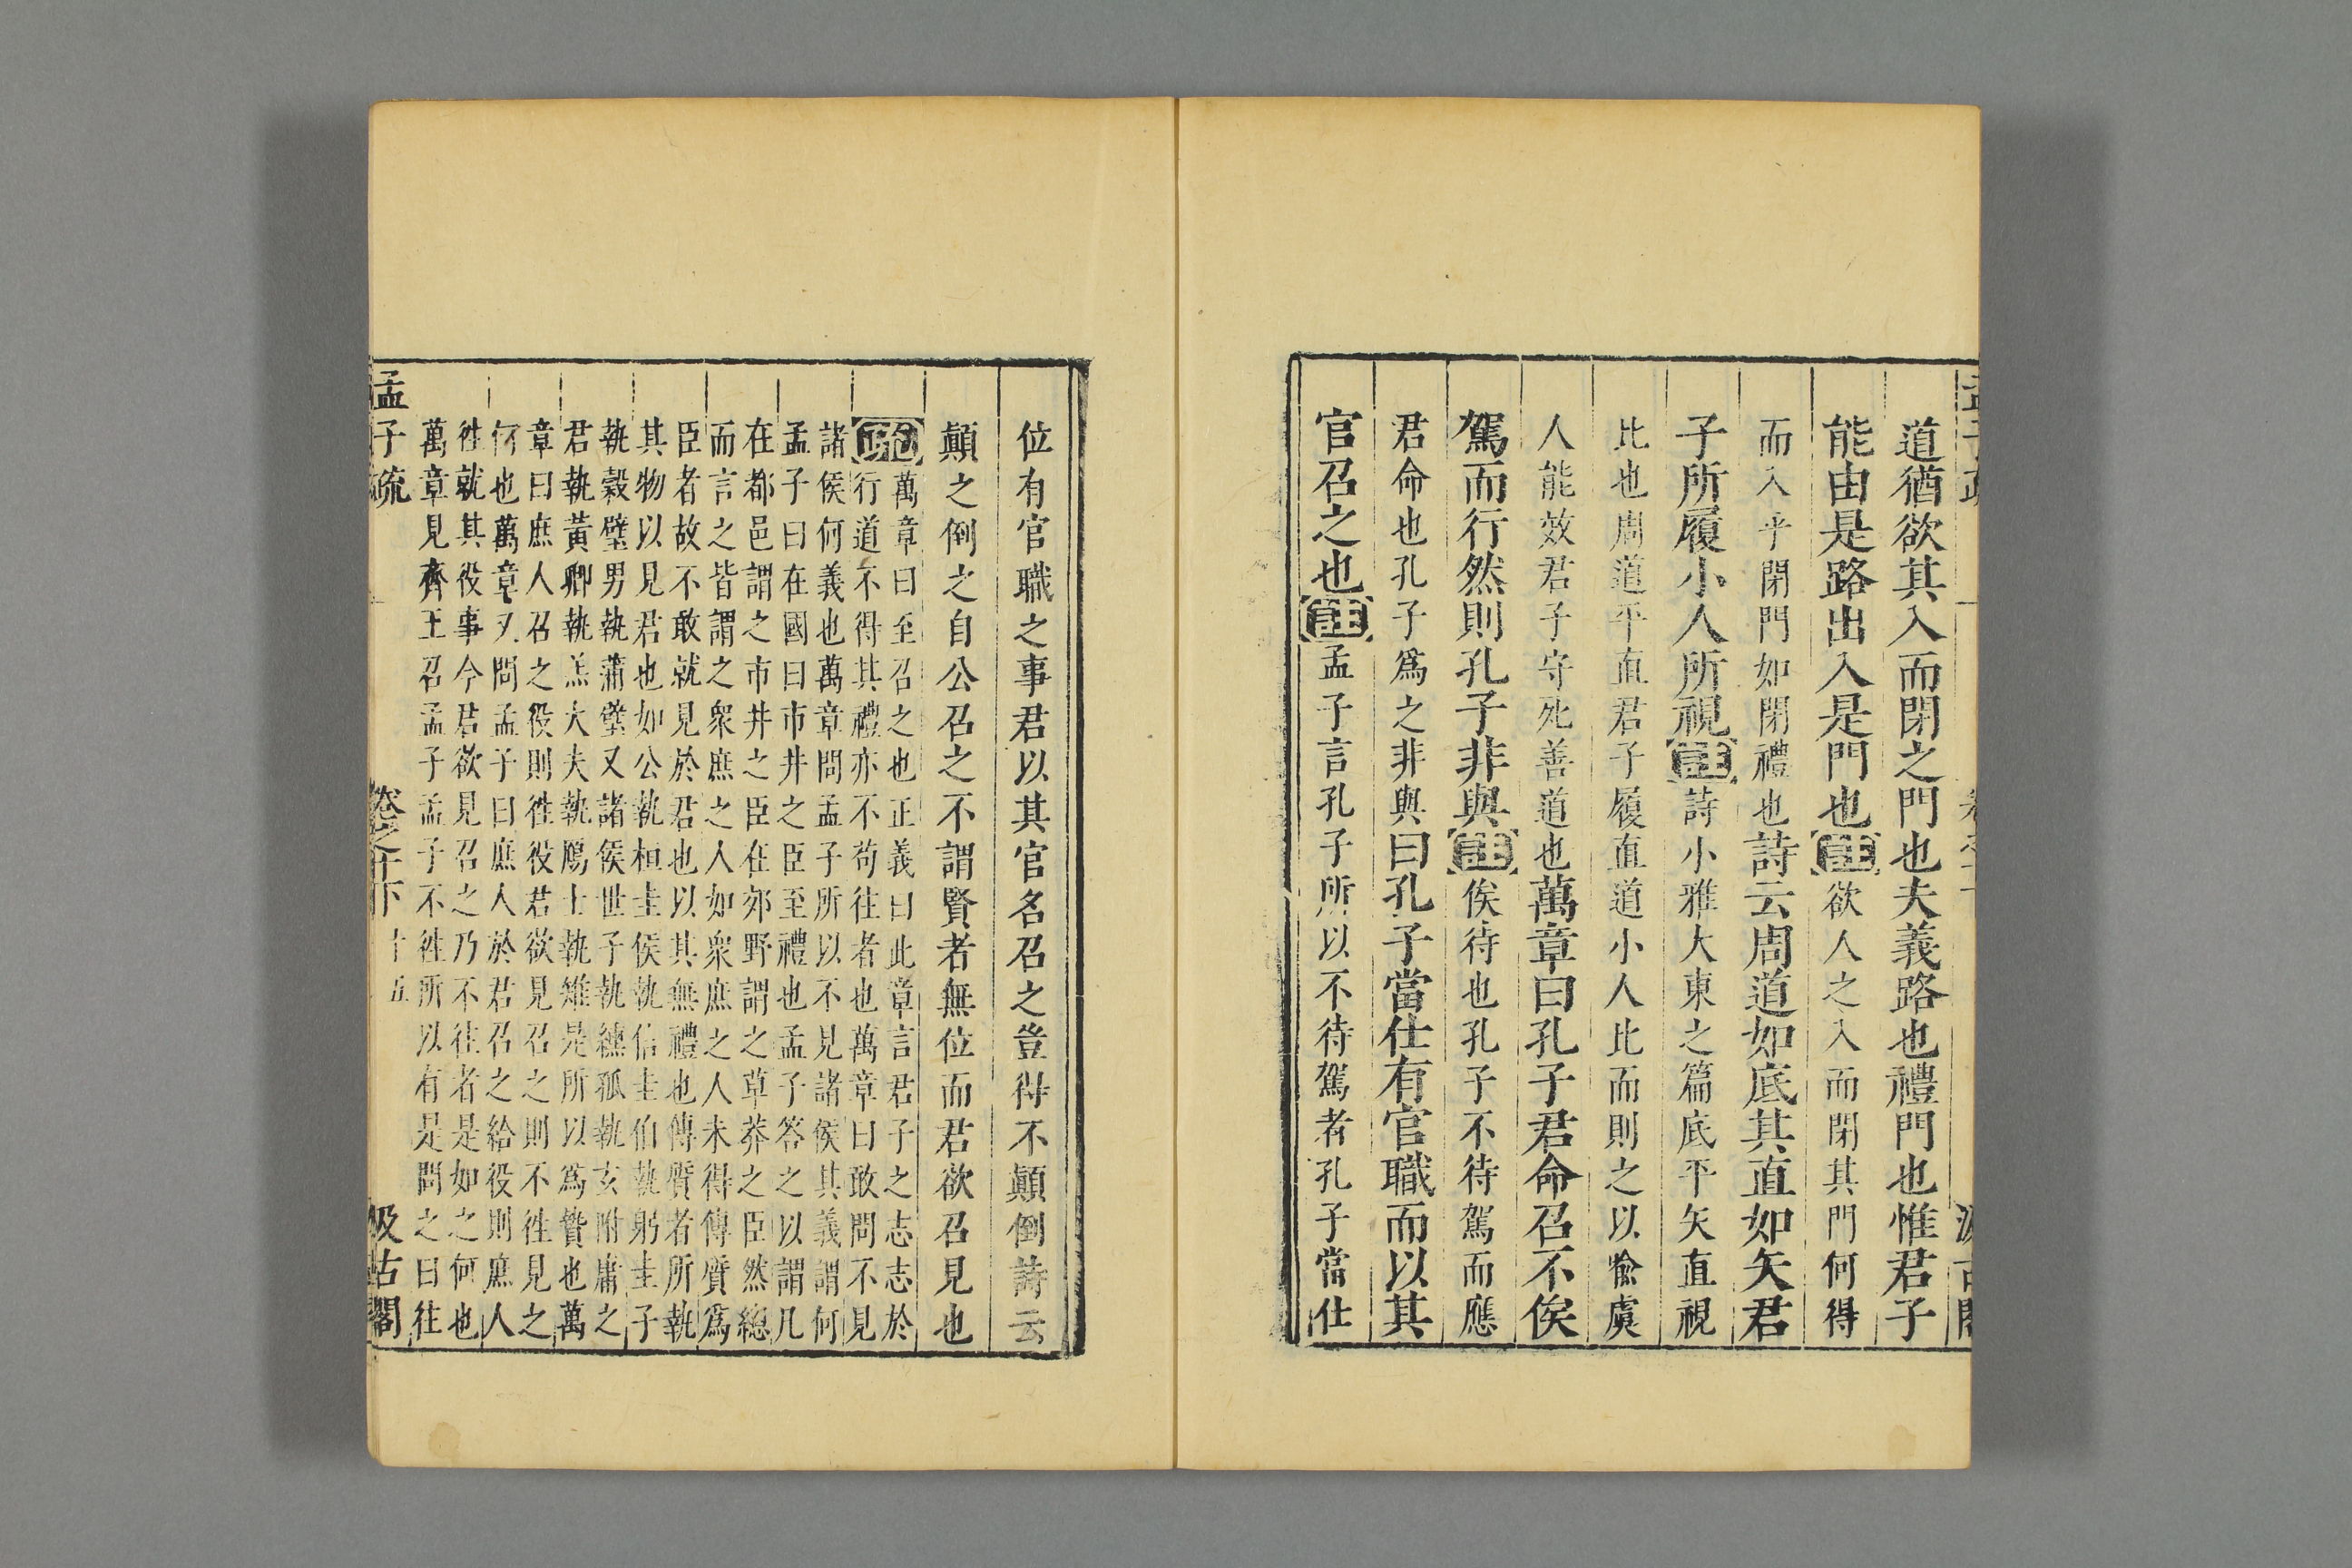 道猶欲其入而閉之門也夫義路也禮門也惟君子
能由是路出入是門也註欲人之入而閉其門何得
而入乎閉門如閉禮也詩云周道如底其直如矢君
子所履小人所視註詩小雅大東之篇底平矢直視
比也周道平直君子履直道小人比而則之以喻虞
人能效君子守死善道也萬章曰孔子君命召不俟
駕而行然則孔子非與註俟待也孔子不待駕而應
君命也孔子爲之非與曰孔子當仕有官職而以其
官召之也註孟子言孔子所以不待駕者孔子當仕
位有官職之事君以其官名召之豈得不顛倒詩云
顛之倒之自公召之不謂賢者無位而君欲召見也
疏萬章曰至召之也正義曰此章言君子之志志於
行道不得其禮亦不苟往者也萬章曰敢問不見
諸侯何義也萬章問孟子所以不見諸侯其義謂何
孟子曰在國曰市井之臣至禮也孟子答之以謂凡
在都邑謂之市井之臣在郊野謂之草莽之臣然總
而言之皆謂之衆庶之人如衆庶之人未得傳質爲
臣者故不敢就見於君也以其無禮也傳質者所執
其物以見君也如公執桓圭侯執信圭伯執躬圭子
執穀璧男執蒲璧又諸侯世子執纁孤執玄附庸之
君執黃卿執羔大夫執鴈士執雉是所以爲贄也萬
章曰庶人召之役則徃役君欲見召之則不徃見之
何也萬章又問孟子曰庶人於君召之給役則庶人
徃就其役事今君欲見召之乃不往者是如之何也
萬章見齊王召孟子孟子不徃所以有是問之曰往
孟子疏 卷之十下 十五 汲古閣